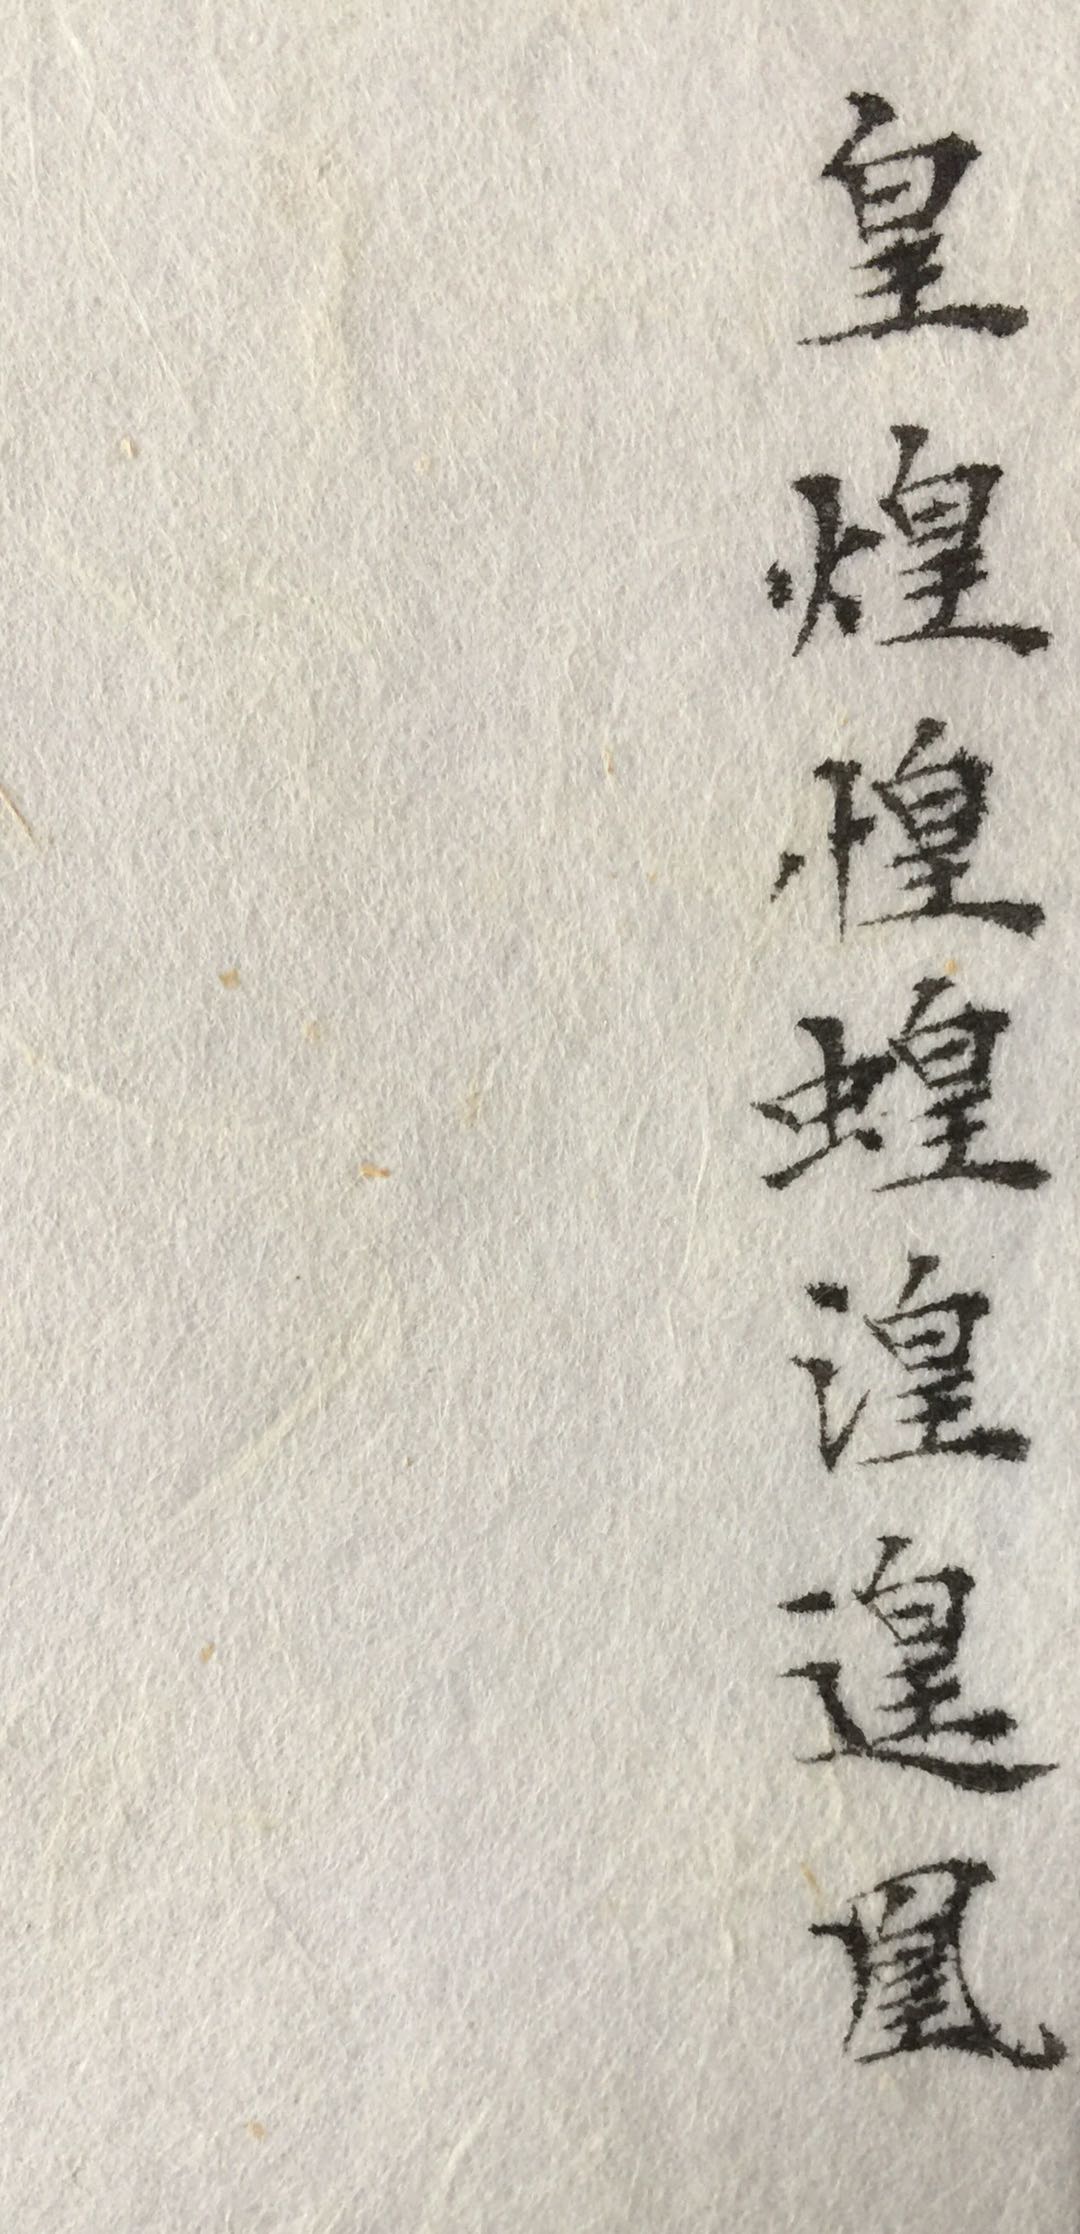 皇煌惶蝗湟遑凰